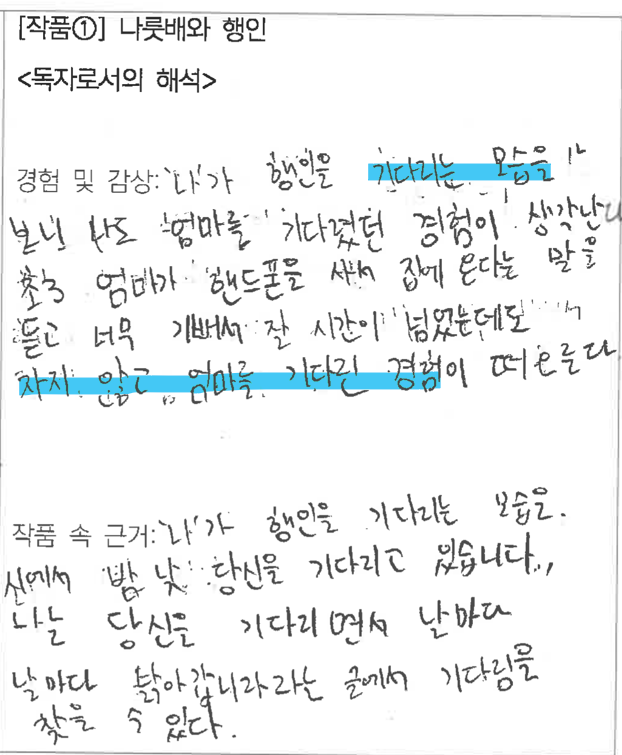 [작품①] 나룻배와 행인
<독자로서의 해석>
경험 및 감상: '나'가 행인을 기다리는 모습을
보니 나도 엄마를 기다렸던 경험이 생각난다
엄마가 핸드폰을 사서 집에 온다는 말을
듣고 너무 기뻐서 잘 시간이 넘었는데도
자지 않고 엄마를 기다린 경험이 떠오른다
작품 속 근거: '나'가 행인을 기다리는 모습을.
시에서 밤 낮 당신을 기다리고 있습니다.,
나는 당신을 기다리면서 날마다
날마다 낡아갑니다라는 글에서 기다림을
찾을 수 있다.